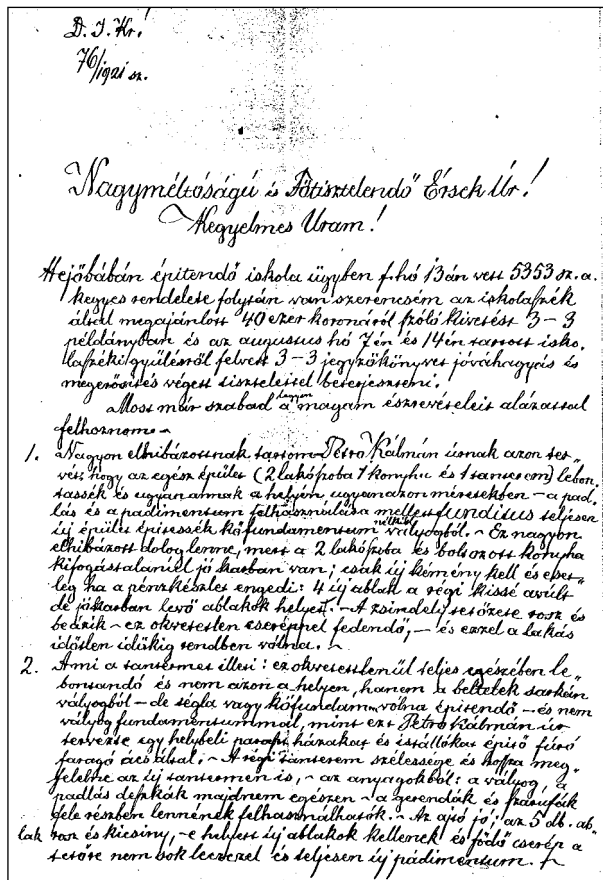 D. J. Kr!
76/1921 sz.
Nagyméltóságú és Főtisztelendő Érsek Úr!
Kegyelmes Uram!
Hejőbábán épitendő iskola ügyben f. hó 13án vett 5353 sz. a.
kegyes rendelete folytán van szerencsém az iskolaszék
által megajánlott 40 ezer koronáról szóló kivetést 3-3
példányban és az augustus hó 7én és 14én tartott isko-
laszéki gyülésről felvett 3-3 jegyzőkönyvet jóváhagyás és
megerősités végett tisztelettel beterjeszteni.
Most már szabad legyen a magam észrevételeit alázattal
felhoznom -
1. Nagyon elhibázottnak tartom Petró Kálmán úrnak azon ter-
vét, hogy az egész épület (2 lakószoba 1 konyha és 1 tanterem) lebon-
tassék és ugyanannak a helyén, ugyanazon méretekben - a pad-
lás és a padimentum felhasználása mellett funditus teljesen
új épület épitessék kőfundamentum nélkül vályogból. - Ez nagyon
elhibázott dolog lenne, mert a 2 lakószoba és boltozott konyha
kifogástalanúl jó karban van; csak új kémény kell és eset-
leg ha a pénzkészlet engedi: 4 új ablak a régi kissé avúlt
de jókarban levő ablakok helyett. - A zsindely tetőzete rossz és
beázik - ez okvetetlen cseréppel fedendő, - és ezzel a lakás
időtlen időkig rendben volna. -
2. Ami a tantermet illeti: ez okvetetlenül teljes egészében le-
bontandó és nem azon a helyen, hanem a beltelek sarkán
vályogból - de tégla vagy kőfundamen volna épitendő - és nem
vályog fundamentummal, mint ezt Petró Kálmán úr
tervezte egy helybeli paraszt házakat és istállókat épitő fúró
faragó ács által. - A régi tanterem szélessége és hossza meg-
felelne az új tantermen is, - az anyagokból: a vályog, a
padlás deszkák majdnem egészen - a gerendák és szarufák
fele részben lennének felhasználhatók. - Az ajtó jó; az 5 db. ab-
lak rossz és kicsiny, - e helyett új ablakok kellenek és födő cserép a
tetőre nem sok léczezel és teljesen új pádimentum.